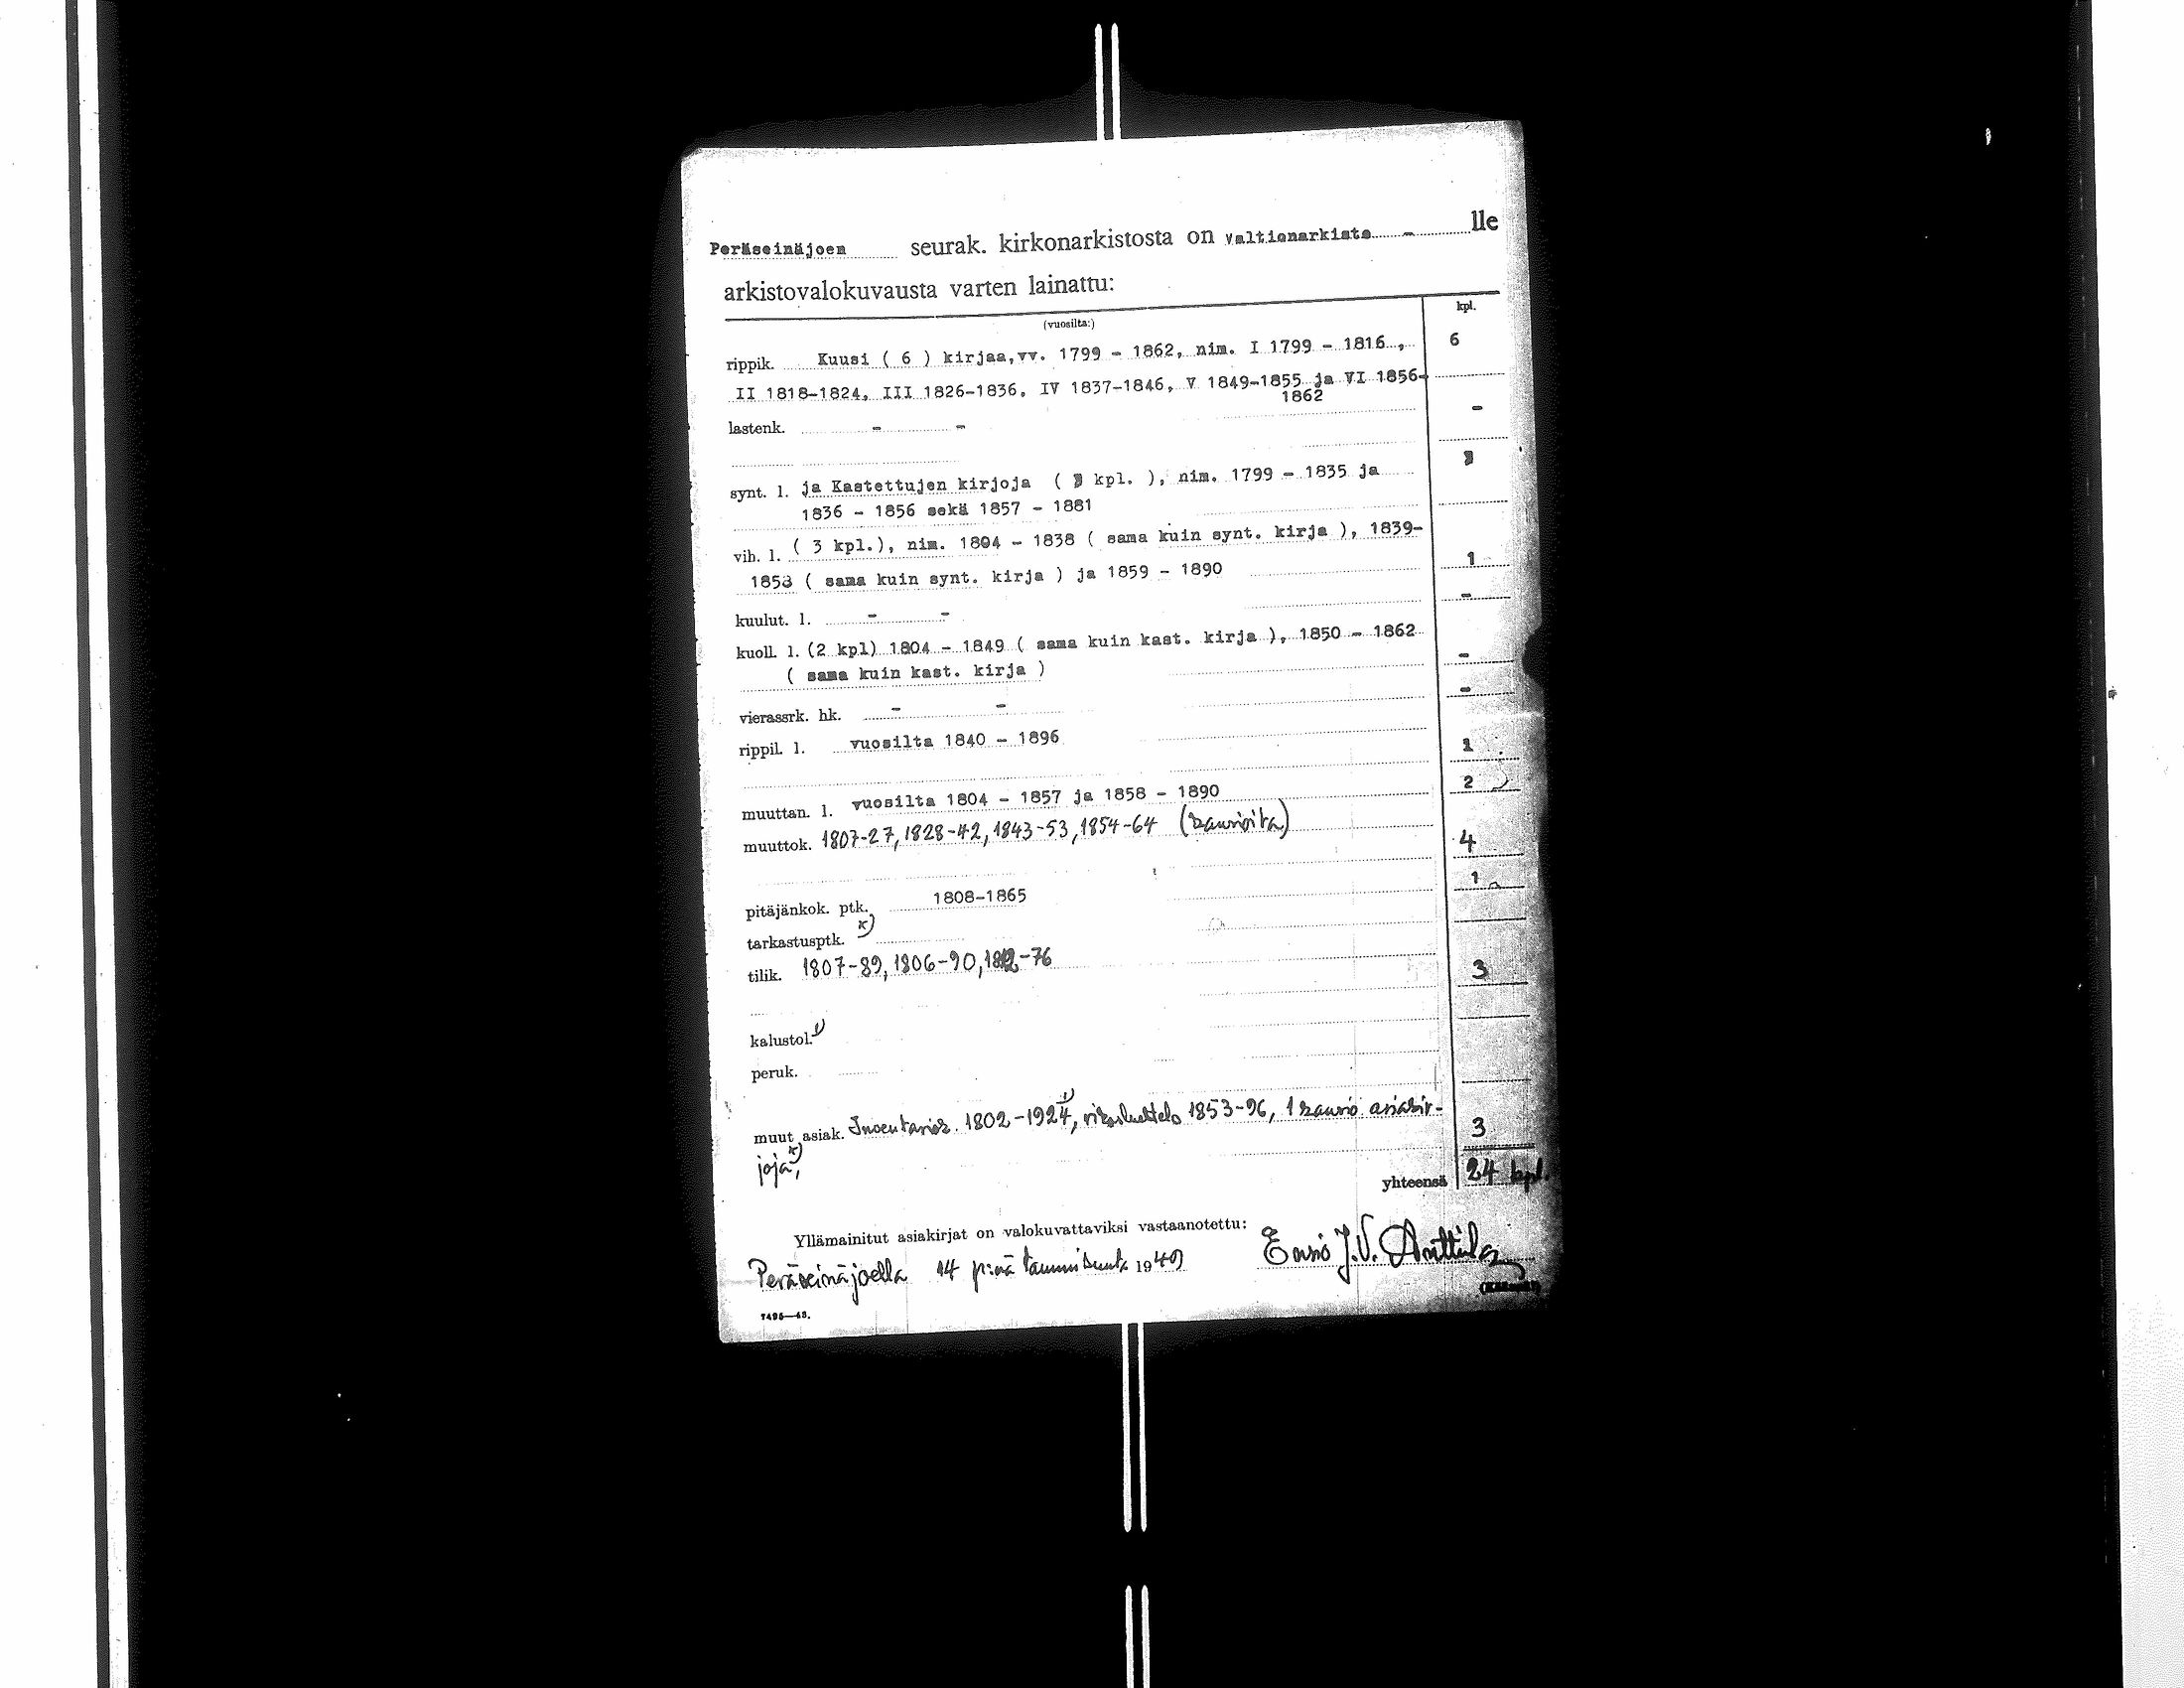 Peräseinäjoen seurak. kirkonarkistosta on valtionarkisto - lle
arkistovalokuvausta varten lainattu:
(vuosilta:) kpl.
rippik. Kuusi ( 6 ) kirjaa,vv. 1799 - 1862, nim. I 1799 - 1816 , 6
II 1818-1824, III 1826-1836, IV 1837-1846, V 1849-1855 ja VI 1856-
1862
lastenk. - - -
synt. l. ja Kastettujen kirjoja ( 3 kpl. ), nim. 1799 - 1835 ja 3
1836 - 1856 sekä 1857 - 1881
vih. l. ( 3 kpl.), nim. 1804 - 1838 ( sama kuin synt. kirja ), 1839-
1858 ( sama kuin synt. kirja ) ja 1859 - 1890 1
kuulut. l. - - -
kuoll. l. (2 kpl) 1804 - 1849 ( sama kuin kast. kirja ), 1850 - 1862 -
( sama kuin kast. kirja )
vierassrk. hk. - - -
rippil. l. vuosilta 1840 - 1896 1
muuttan. l. vuosilta 1804 - 1857 ja 1858 - 1890 2
muuttok. 1807-27, 1828-42, 1843-53, 1854-64 (kansioita) 4
pitäjänkok. ptk. 1808-1865 1
tarkastusptk. x)
tilik. 1807-89, 1806-90, 1812-76 3
kalustol. 1)
peruk.
muut asiak. Inventariok. 1802-1924 1), rikosluettelo 1853-96, 1 kansio asiakir- 3
joja x),
yhteensä 24 kpl.
Yllämainitut asiakirjat on valokuvattaviksi vastaanotettu:
Peräseinäjoella 14 p:nä tammikuuta 1949 Ensio J.V. Anttila
7495—48.